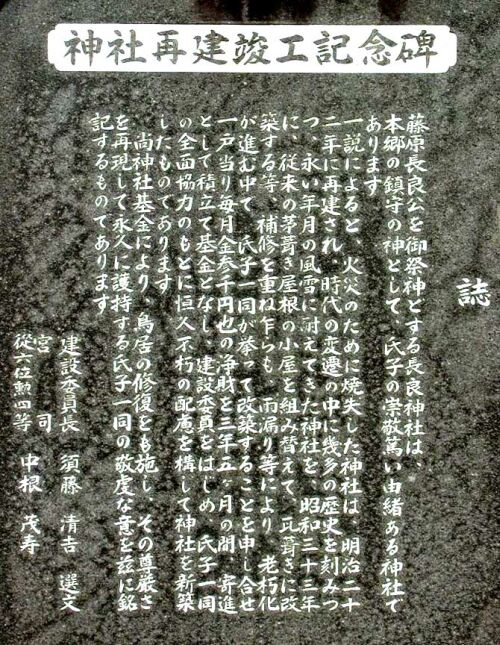 神社再建竣工記念碑
誌
藤原長良公を御祭神とする長良神社は、
本郷の鎮守の神として、氏子の崇敬篤い由緒ある神社で
あります
一説によると、火災のために焼失した神社は、明治二十
二年に再建され、時代の変遷の中に幾多の歴史を刻みつ
つ、永い年月の風雪に耐えてきた神社を、昭和三十三年
に、従来の茅葺き屋根の小屋を組み替えて、瓦葺きに改
築する等、補修を重ね乍らも、雨漏り等により、老朽化
が進む中で、氏子一同が挙って改築することを申し合せ
一戸当り毎月金参千円也の浄財を三年五ヶ月の間、寄進
として積立て基金となし、建設委員をはじめ、氏子一同
の全面協力のもとに恒久不朽の配慮を構して神社を新築
したものであります
尚神社基金により、鳥居の修復をも施し、その尊厳さ
を再現して永久に護持する氏子一同の敬虔な意を茲に銘
記するものであります
建設委員長 須藤 清吉 選文
宮司
従六位勲四等 中根 茂寿